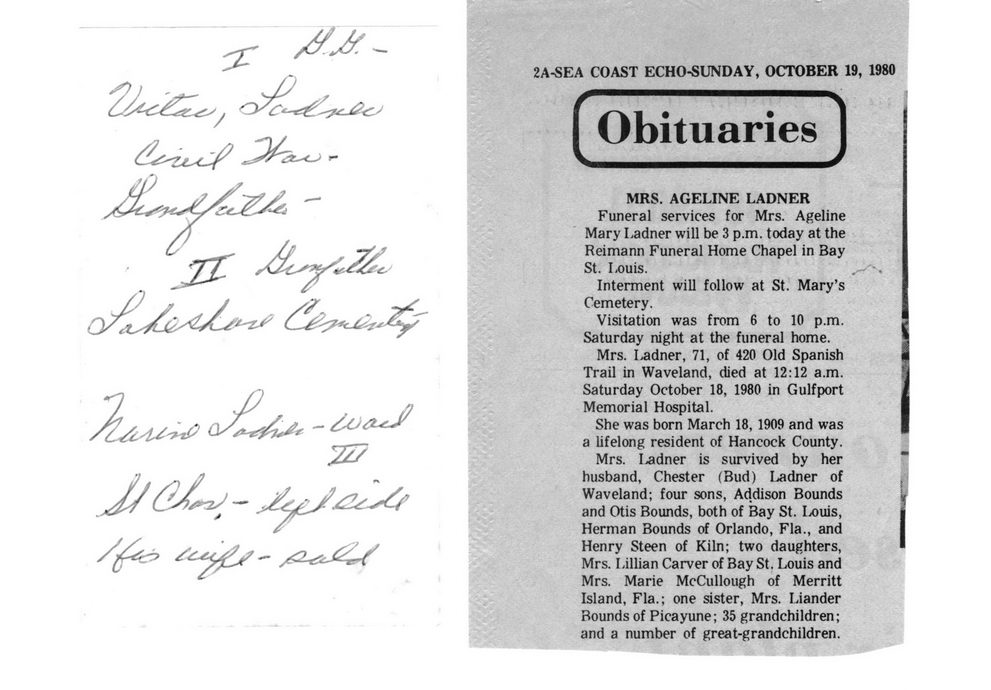 I G.G. -
Ladner
Civil War -
Grandfather -
II Grandfather
Lakeshore Cementery
Ladner - ward
III
St Chas. - left side
His wife - sold
2A-SEA COAST ECHO-SUNDAY, OCTOBER 19, 1980
Obituaries
MRS. AGELINE LADNER
Funeral services for Mrs. Ageline
Mary Ladner will be 3 p.m. today at the
Reimann Funeral Home Chapel in Bay
St. Louis.
Interment will follow at St. Mary's
Cemetery.
Visitation was from 6 to 10 p.m.
Saturday night at the funeral home.
Mrs. Ladner, 71, of 420 Old Spanish
Trail in Waveland, died at 12:12 a.m.
Saturday October 18, 1980 in Gulfport
Memorial Hospital.
She was born March 18, 1909 and was
a lifelong resident of Hancock County.
Mrs. Ladner is survived by her
husband, Chester (Bud) Ladner of
Waveland; four sons, Addison Bounds
and Otis Bounds, both of Bay St. Louis,
Herman Bounds of Orlando, Fla., and
Henry Steen of Kiln; two daughters,
Mrs. Lillian Carver of Bay St. Louis and
Mrs. Marie McCullough of Merritt
Island, Fla.; one sister, Mrs. Liander
Bounds of Picayune; 35 grandchildren;
and a number of great-grandchildren.